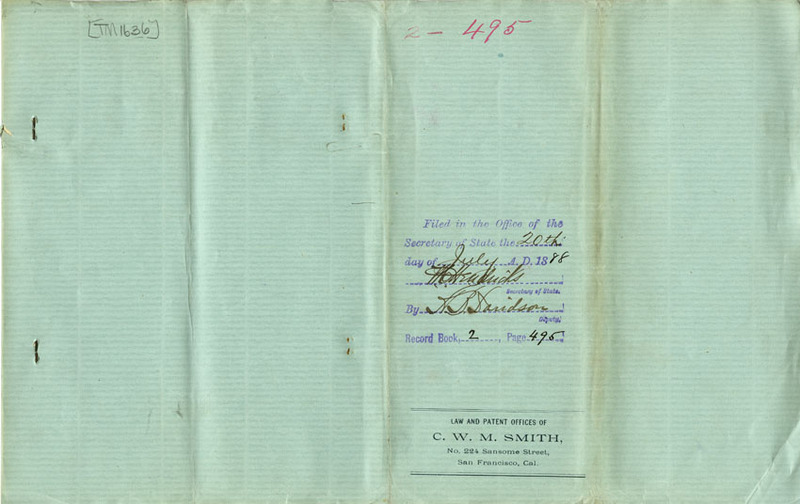 [TM1636]
2 - 495
Filed in the Office of the
Secretary of State the 20th
day of July A.D. 1888
W C Hendricks
Secretary of State.
By H. B. Davidson
Deputy
Record Book, 2, Page 495
LAW AND PATENT OFFICES OF
C. W. M. SMITH,
No. 224 Sansome Street,
San Francisco, Cal.